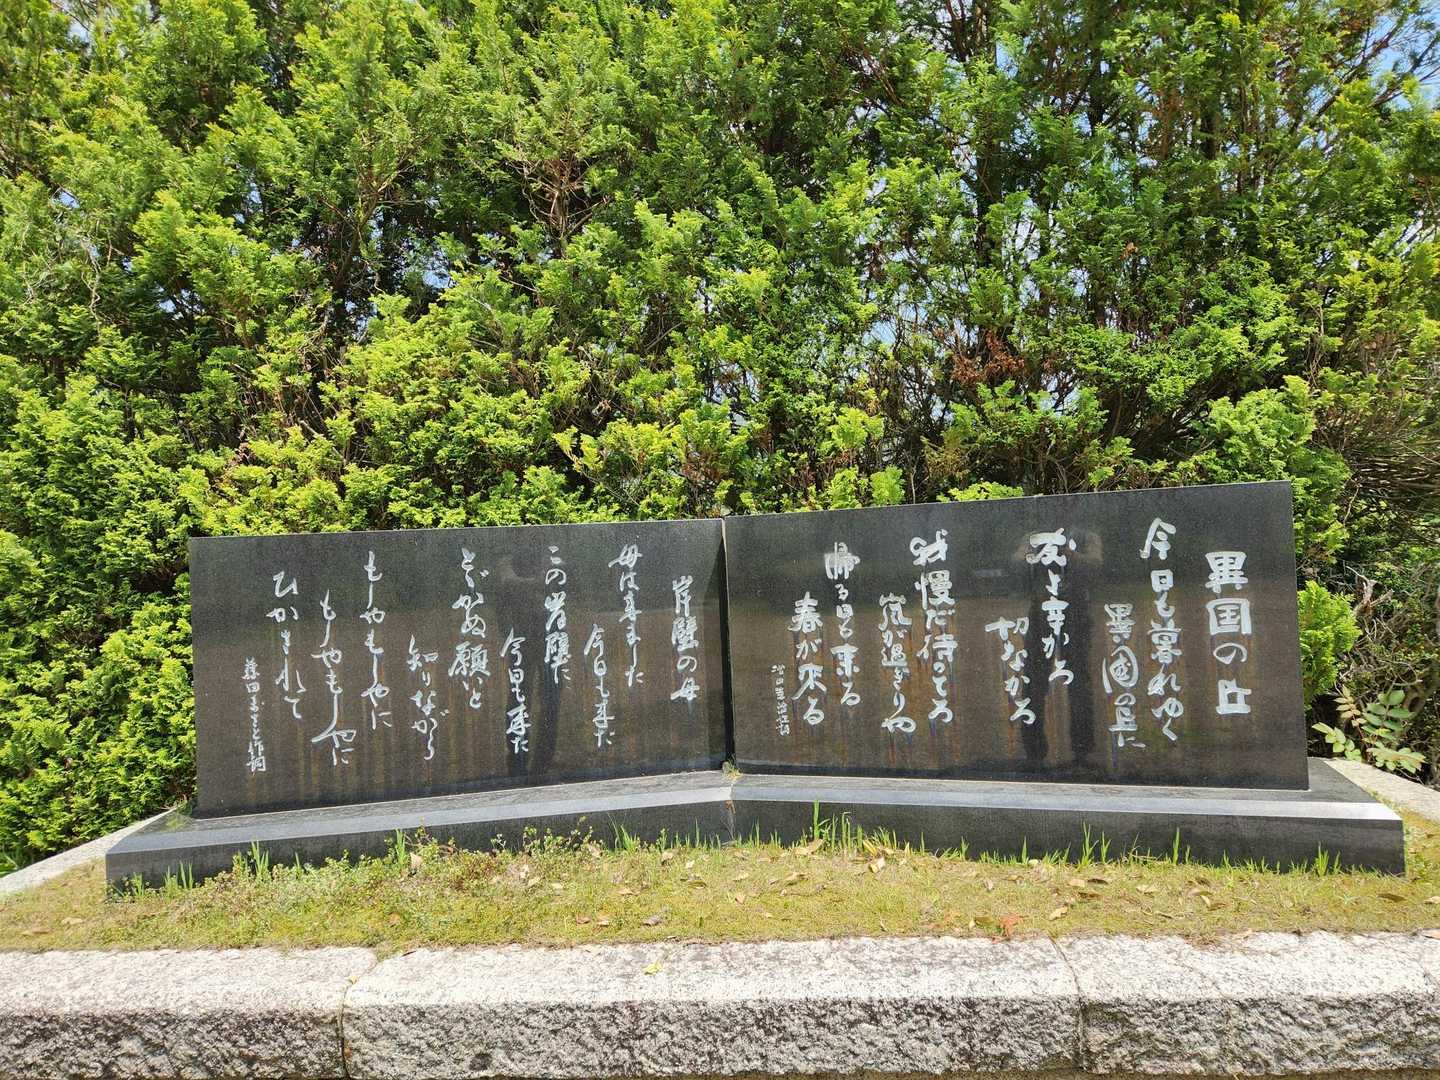 異国の丘
今日も暮れゆく
異國の丘に
友よ辛かろ
切なかろ
我慢だ待ってろ
嵐が過ぎりゃ
帰る日も来る
春が来る
岸壁の母
母は来ました
今日も来た
この岸壁に
今日も来た
とゞかぬ願いと
知りながら
もしやもしやに
もしやもしやに
ひかされて
藤田まさと作詞